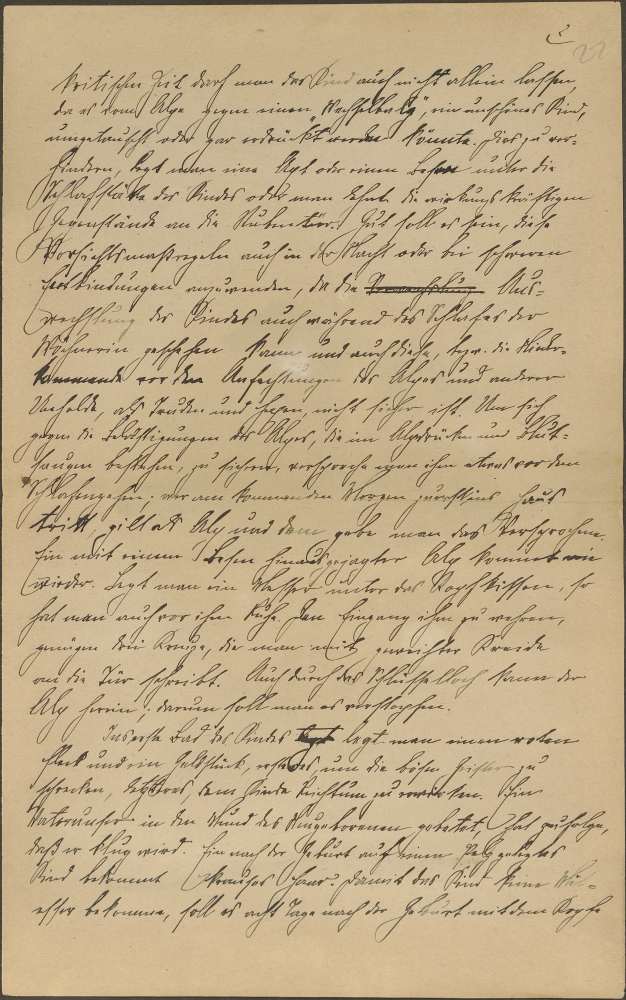 2
22
kritischen Zeit darf man das Kind auch nicht allein lassen,
da es vom Alp gegen einen "Wechselbalg", ein unschönes Kind,
umgetauscht oder gar erdrückt werden könnte. Dies zu ver-
hindern, legt man eine Axt oder einen Besen unter die
Schlafstätte des Kindes oder man lehnt die wirkungskräftigen
Gegenstände an die Stubentür. Gut soll es sein, diese
Vorsichtsmaßregeln auch in der Nacht oder bei schweren
Entbindungen anzuwenden, da die Aus-
wechslung des Kindes auch während des Schlafes der
Wöchnerin geschehen kann und auch diese, bzw. die Nieder-
kommende vor den Anfechtungen des Alpes und anderer
Unholde, als Truden und Hexen, nicht sicher ist. Um sich
gegen die Belästigungen des Alpes, die im Alpdrücken und Blut-
saugen bestehen, zu sichern, verspreche man ihm etwas vor dem
Schlafengehen; wer am kommenden Morgen zuerst ins Haus
tritt, gilt als Alp und dem gebe man das Versprochene.
Ein mit einem Besen hinausgejagter Alp kommt nie
wieder. Legt man ein Messer unter das Kopfkissen, so
hat man auch vor ihm Ruhe. Den Eingang ihm zu wehren,
genügen drei Kreuze, die man mit geweihter Kreide
an die Tür schreibt. Auch durch das Schlüsselloch kann der
Alp herein; darum soll man es verstopfen.
Ins erste Bad des Kindes legt man einen roten
Fleck und ein Geldstück, ersteres, um die bösen Geister zu
schrecken, letzteres, dem Kinde Reichtum zu erwirken. Ein
Vaterunser in den Mund des Neugeborenen gebetet, hat zufolge,
daß er klug wird. Ein nach der Geburt auf einen Pelz gelegtes
Kind bekommt krauses Haar. Damit das Kind keine Mit-
esser bekomme, soll es acht Tage nach der Geburt mit dem Kopfe